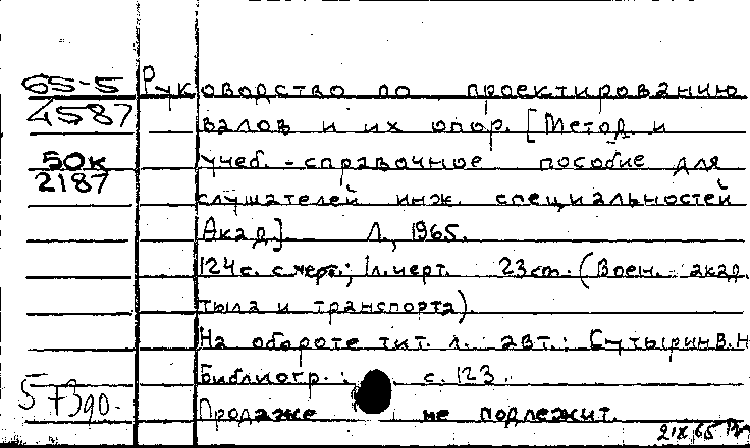 65-5
4587
50к
2187
57390.
Руководство по проектированию
валов и их опор. [Метод. и
учеб.-справочное пособие для
слушателей инж. специальностей
Акад.] Л., 1965.
124 с. с черт.; 1 л. черт. 23 см. (Воен. акад.
тыла и транспорта).
На обороте тит. л. авт.: Сутырин В. Н
Библиогр.: с. 123.
Продаже не подлежит.